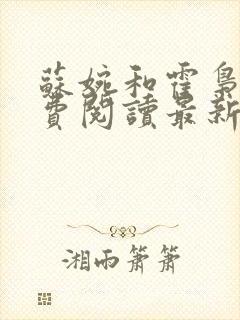 蘇婉和霍梟
費閱讀最新
湘雨簫簫